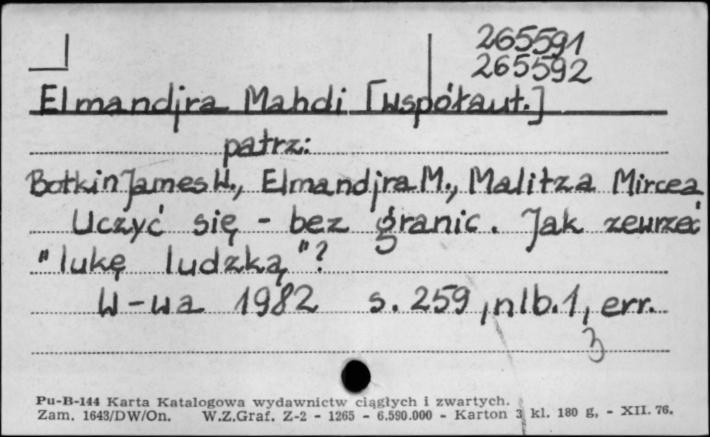 265591
265592
Elmandjra Mahdi [współaut.]
patrz:
Botkin James W., Elmandjra M., Malitza Mircea
Uczyć się - bez granic. Jak zewrzeć
"lukę ludzką"?
W-wa 1982 s. 259, nlb. 1, err.
3
Pu-B-144 Karta Katalogowa wydawnictw ciągłych i zwartych.
Zam. 1643/DW/On. W.Z.Graf. Z-2 - 1265 - 6.590.000 - Karton 3 kl. 180 g. - XII. 76.